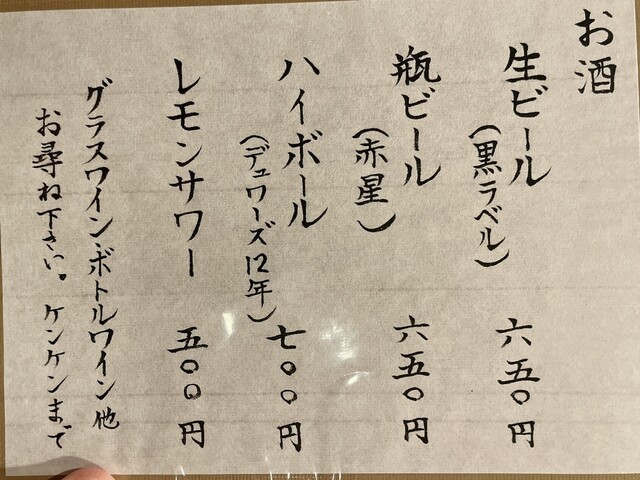 お酒
生ビール
(黒ラベル)
六五〇円
瓶ビール
(赤星)
六五〇円
ハイボール
(デュワーズ12年)
七〇〇円
レモンサワー
五〇〇円
グラスワイン・ボトルワイン他
お尋ね下さい。ケンケンまで